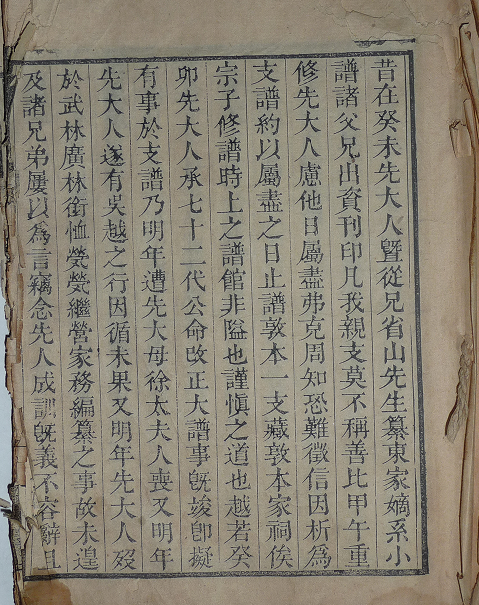 昔在癸未先大人曁從兄省山先生纂東家嫡系小
譜諸父兄出資刊印凡我親支莫不稱善比甲午重
修先大人慮他日屬盡弗克周知恐難徵信因析為
支譜約以屬盡之日止譜敦本一支藏敦本家祠俟
宗子修譜時上之譜館非隘也謹愼之道也越若癸
卯先大人承七十二代公命改正大譜事旣竣卽擬
有事於支譜乃明年遭先大母徐太夫人喪又明年
先大人遂有吳越之行因循未果又明年先大人歿
於武林廣林銜恤煢煢繼營家務編纂之事故未遑
及諸兄弟屢以為言竊念先人成訓旣義不容辭且